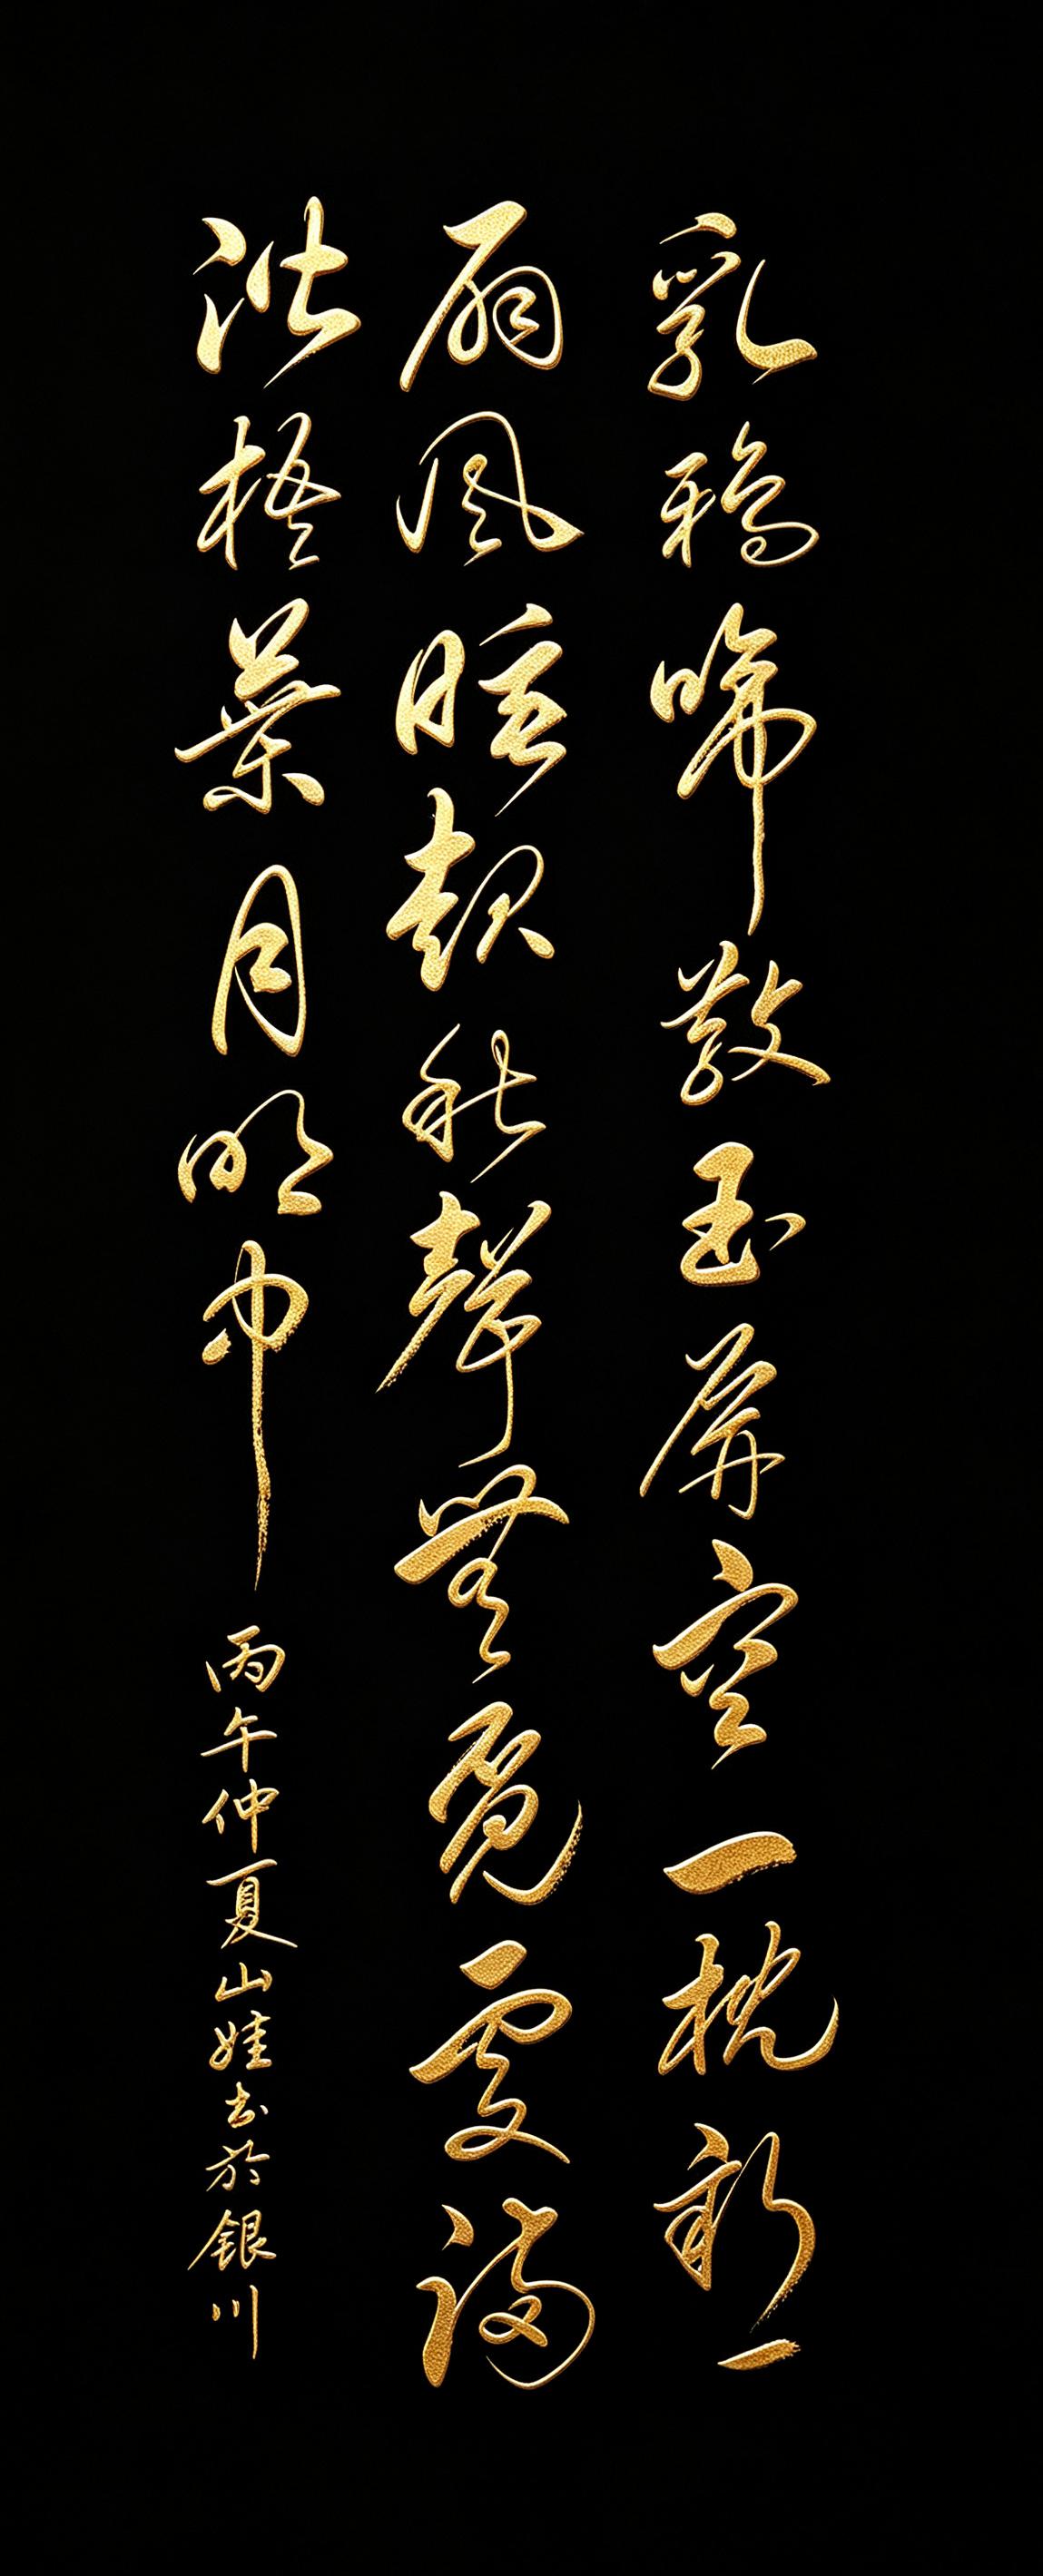 乳鴉啼散玉屏空一枕新一
扇風睡起秋聲無覓處滿
階梧葉月明中
丙午仲夏山娃書於銀川